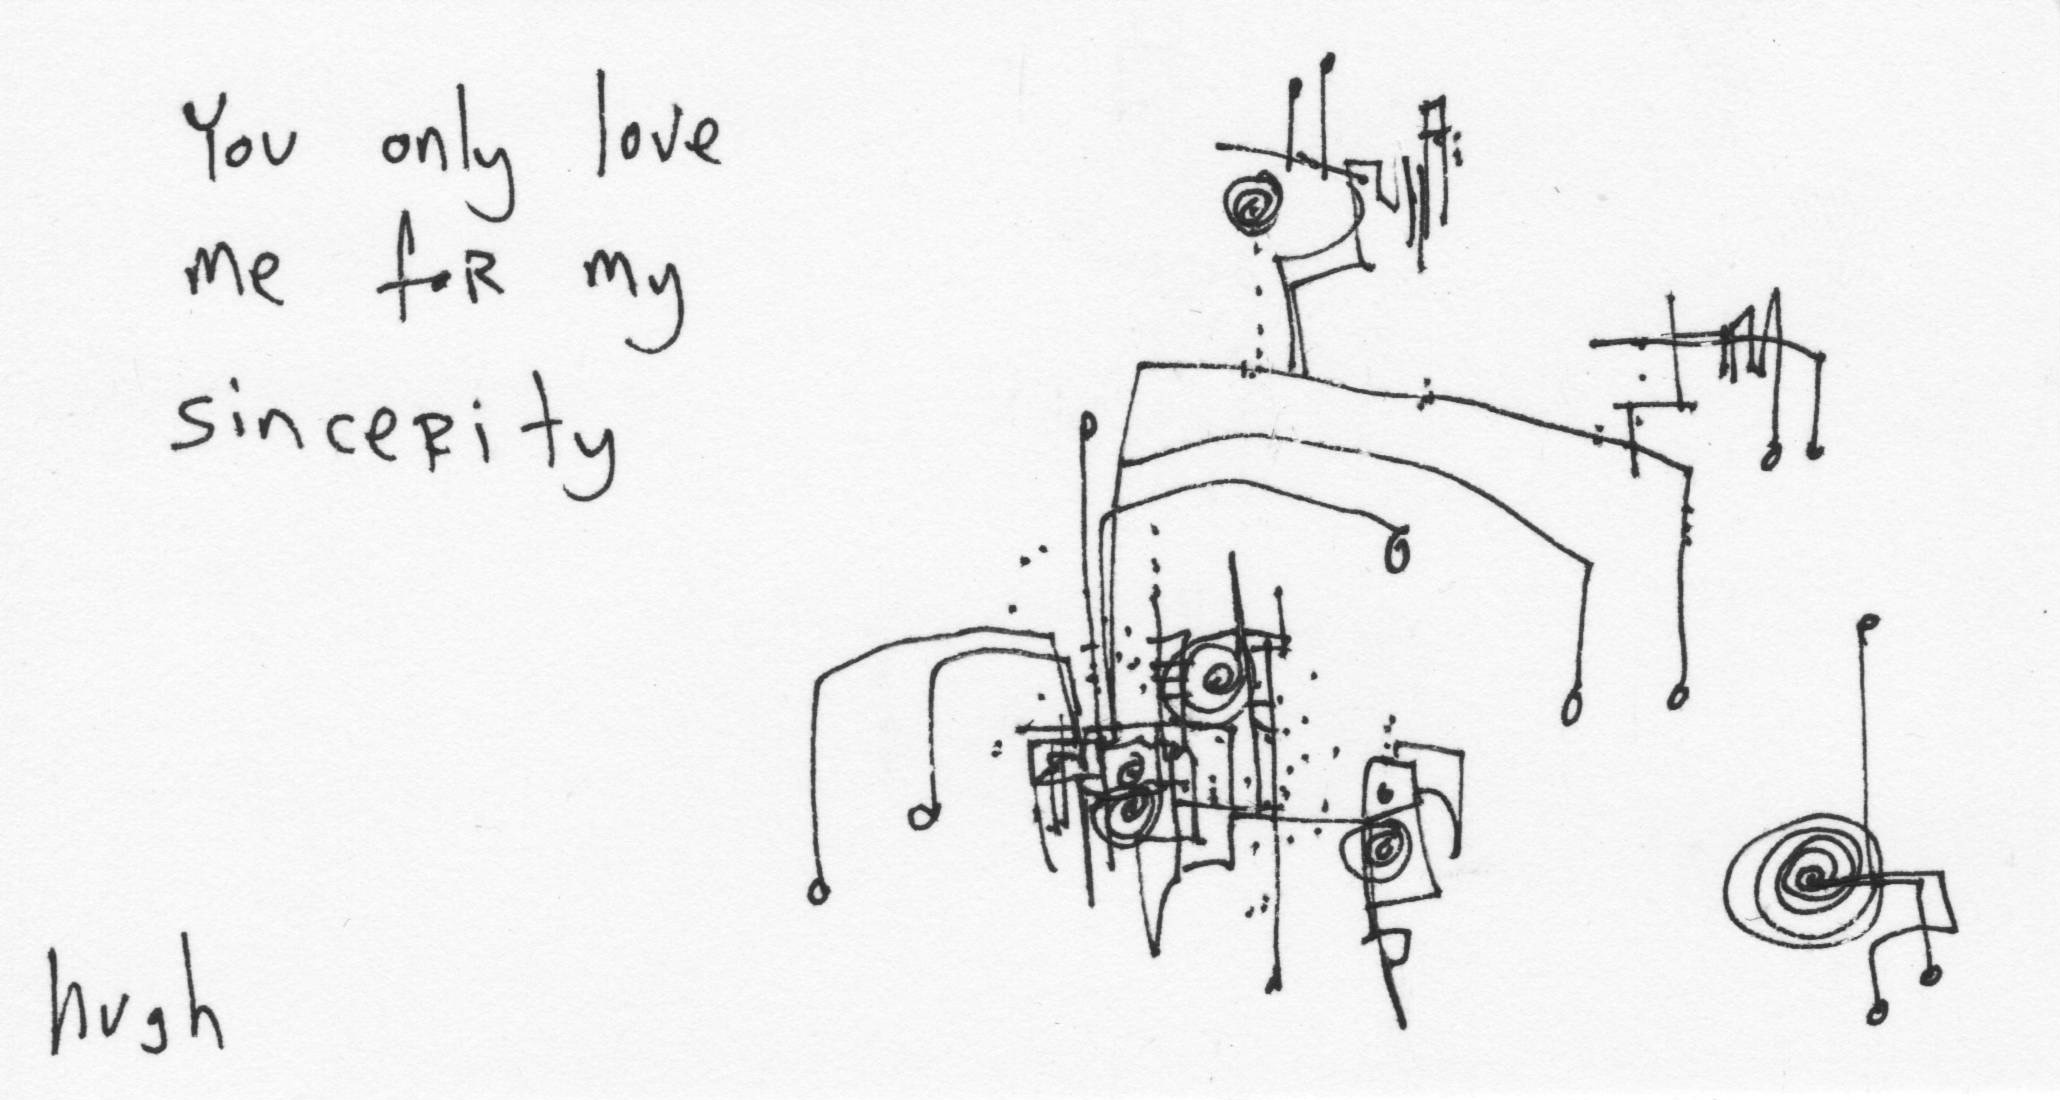 You only love
me foR my
sinceRity
hugh